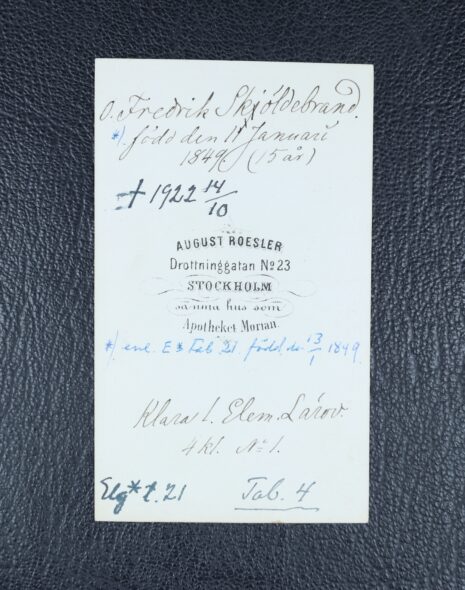 O. Fredrik Skjöldebrand.
*) född den 11 Januari
1849. (15 år)
† 1922 14/10
AUGUST ROESLER
Drottninggatan No 23
STOCKHOLM
samma hus som
Apotheket Morian.
*) enl. E* Tab 21. född den 13/1 1849.
Klara l. Elem. Lärov.
4 kl. No 1.
Elg* t. 21
Tab. 4